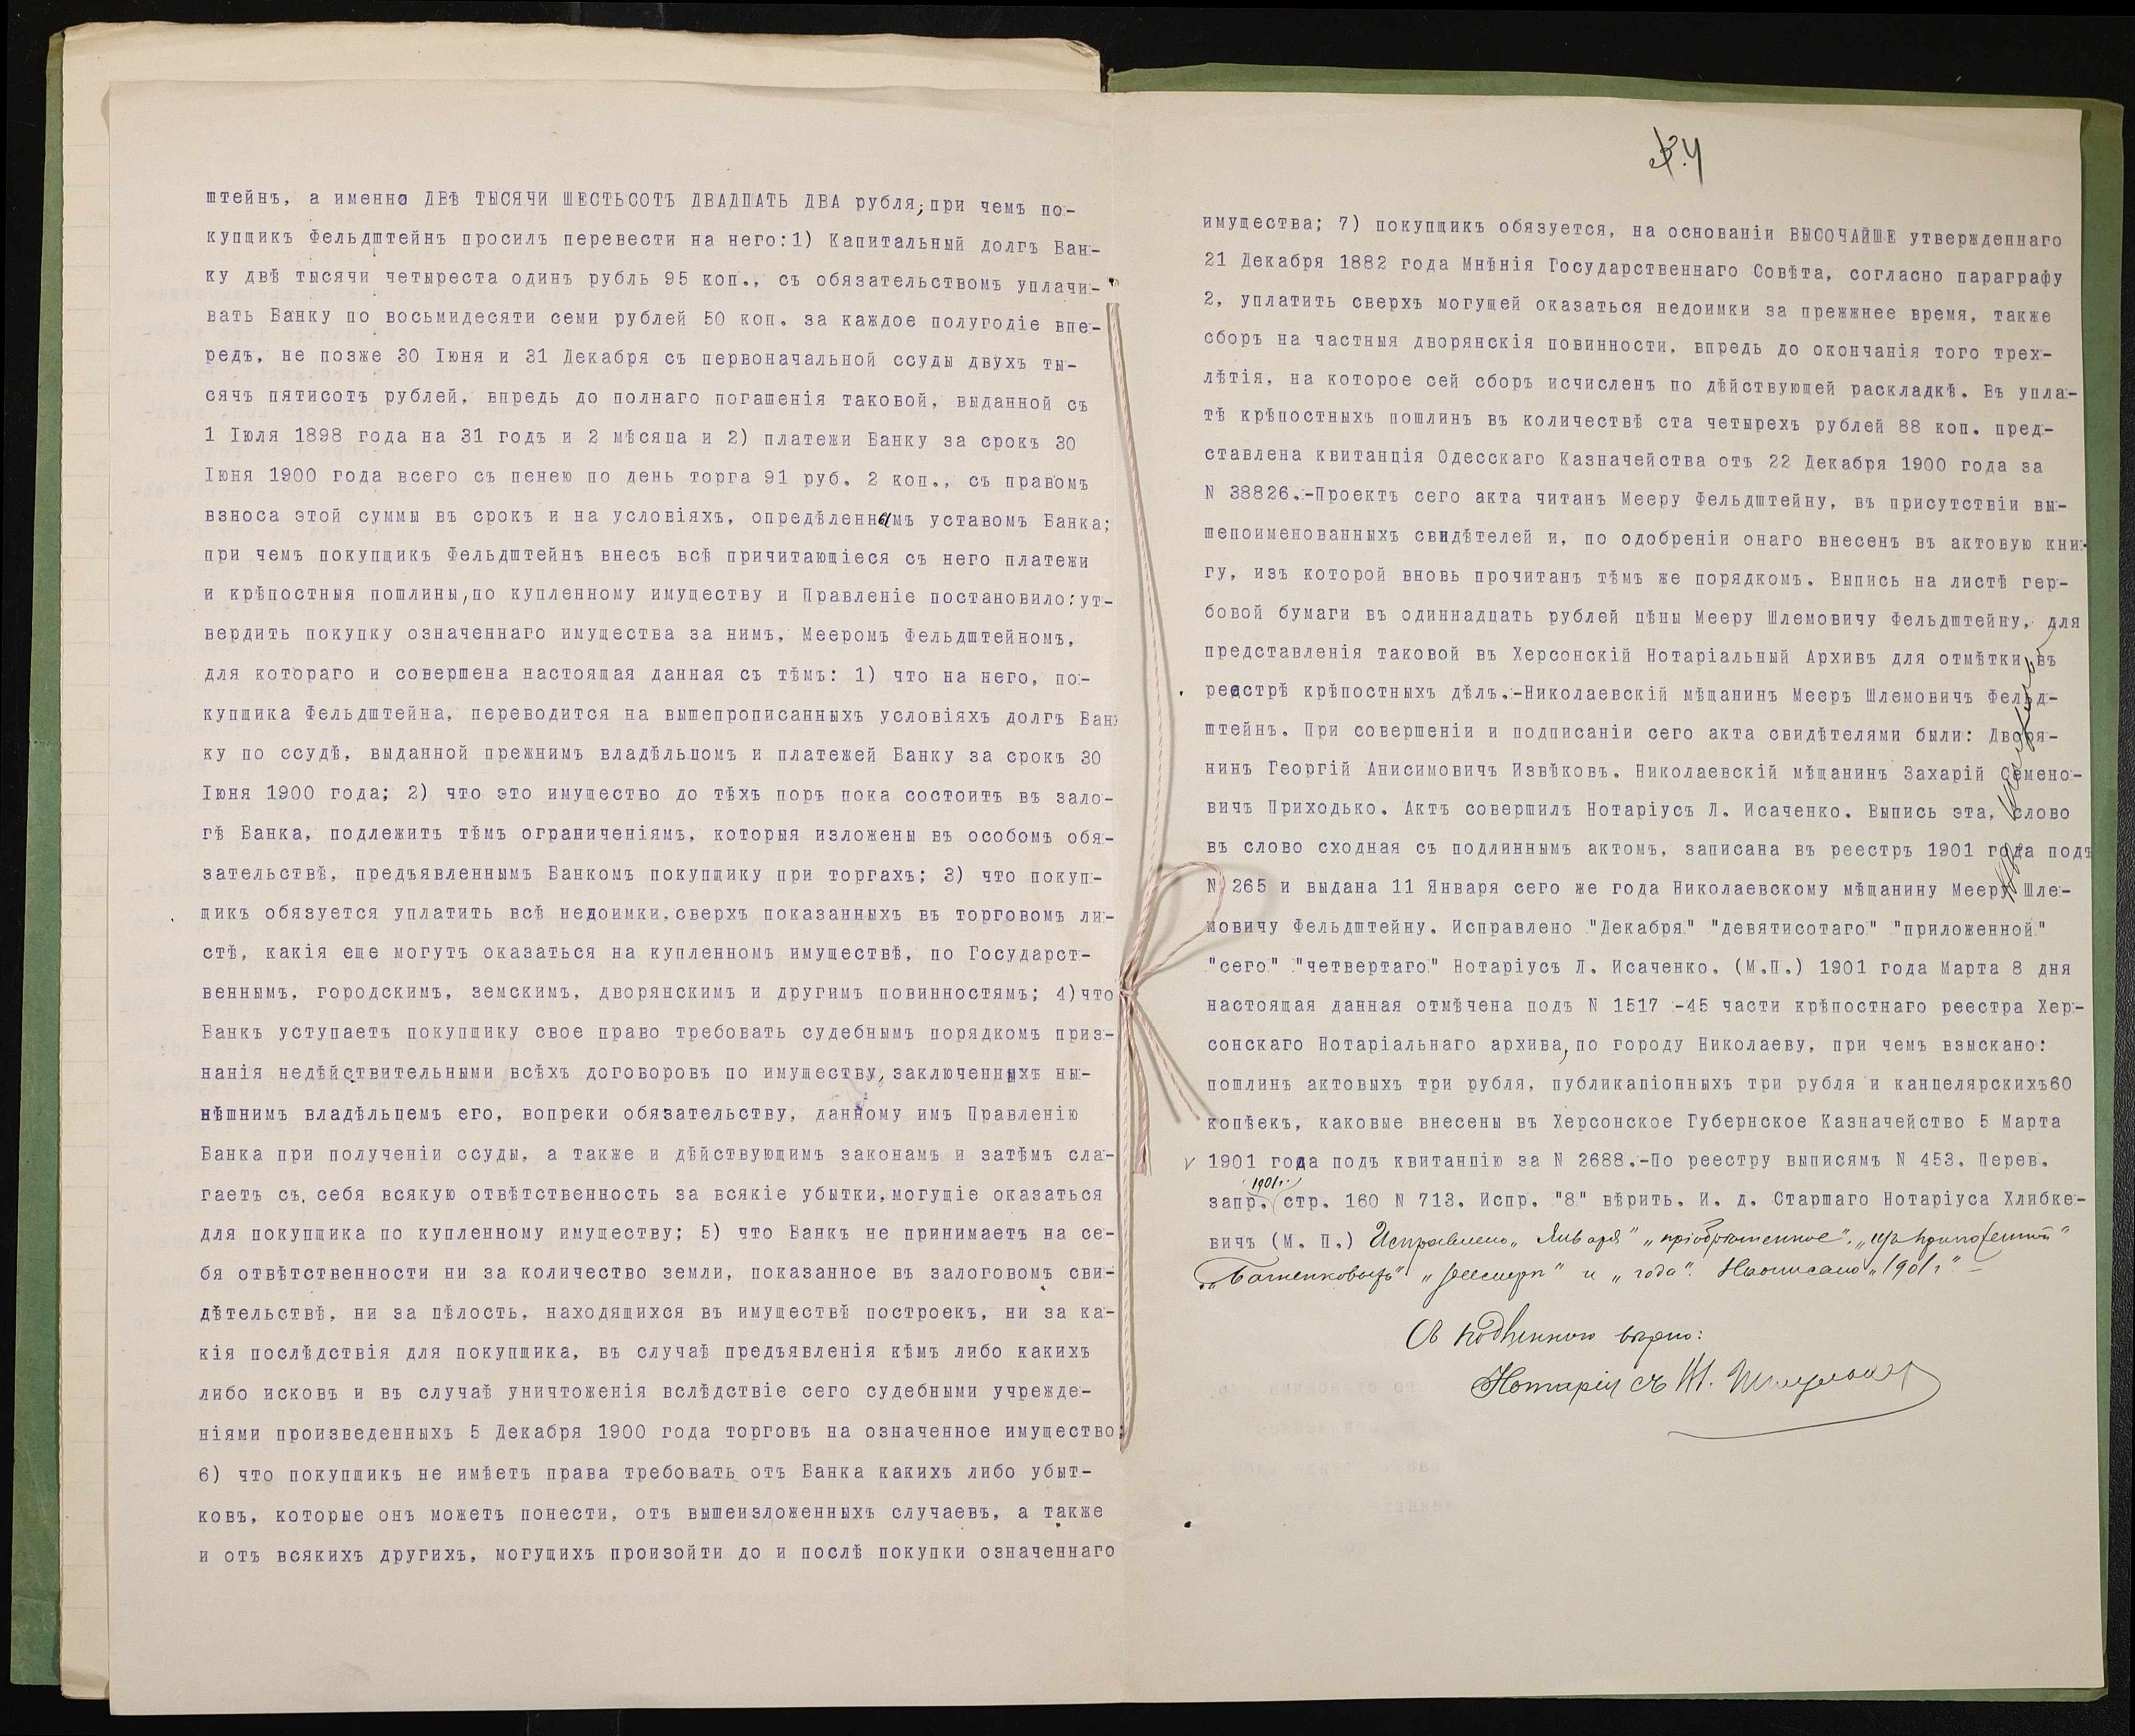 штейнъ, а именно ДВѢ ТЫСЯЧИ ШЕСТЬСОТЪ ДВАДЦАТЬ ДВА рубля; при чемъ по-
купщикъ Фельдштейнъ просилъ перевести на него: 1) Капитальный долгъ Бан-
ку двѣ тысячи четыреста одинъ рубль 95 коп., съ обязательствомъ уплачи-
вать Банку по восьмидесяти семи рублей 50 коп. за каждое полугодіе впе-
редъ, не позже 30 Іюня и 31 Декабря съ первоначальной ссуды двухъ ты-
сячъ пятисотъ рублей, впредь до полнаго погашенія таковой, выданной съ
1 Іюля 1898 года на 31 годъ и 2 мѣсяца и 2) платежи Банку за срокъ 30
Іюня 1900 года всего съ пенею по день торга 91 руб. 2 коп., съ правомъ
взноса этой суммы въ срокъ и на условіяхъ, опредѣленнымъ уставомъ Банка;
при чемъ покупщикъ Фельдштейнъ внесъ всѣ причитающіеся съ него платежи
и крѣпостныя пошлины, по купленному имуществу и Правленіе постановило: ут-
вердить покупку означеннаго имущества за нимъ, Мееромъ Фельдштейномъ,
для котораго и совершена настоящая данная съ тѣмъ: 1) что на него, по-
купщика Фельдштейна, переводится на вышепрописанныхъ условіяхъ долгъ Бан-
ку по ссудѣ, выданной прежнимъ владѣльцомъ и платежей Банку за срокъ 30
Іюня 1900 года; 2) что это имущество до тѣхъ поръ пока состоитъ въ зало-
гѣ Банка, подлежитъ тѣмъ ограниченіямъ, которыя изложены въ особомъ обя-
зательствѣ, предъявленнымъ Банкомъ покупщику при торгахъ; 3) что покуп-
щикъ обязуется уплатить всѣ недоимки, сверхъ показанныхъ въ торговомъ ли-
стѣ, какія еще могутъ оказаться на купленномъ имуществѣ, по Государст-
веннымъ, городскимъ, земскимъ, дворянскимъ и другимъ повинностямъ; 4) что
Банкъ уступаетъ покупщику свое право требовать судебнымъ порядкомъ приз-
нанія недѣйствительными всѣхъ договоровъ по имуществу, заключенныхъ ны-
нѣшнимъ владѣльцемъ его, вопреки обязательству, данному имъ Правленію
Банка при полученіи ссуды, а также и дѣйствующимъ законамъ и затѣмъ сла-
гаетъ съ себя всякую отвѣтственность за всякіе убытки, могущіе оказаться
для покупщика по купленному имуществу; 5) что Банкъ не принимаетъ на се-
бя отвѣтственности ни за количество земли, показанное въ залоговомъ сви-
дѣтельствѣ, ни за цѣлость, находящихся въ имуществѣ построекъ, ни за ка-
кія послѣдствія для покупщика, въ случаѣ предъявленія кѣмъ либо какихъ
либо исковъ и въ случаѣ уничтоженія вслѣдствіе сего судебными учрежде-
ніями произведенныхъ 5 Декабря 1900 года торговъ на означенное имущество;
6) что покупщикъ не имѣетъ права требовать отъ Банка какихъ либо убыт-
ковъ, которые онъ можетъ понести, отъ вышеизложенныхъ случаевъ, а также
и отъ всякихъ другихъ, могущихъ произойти до и послѣ покупки означеннаго
имущества; 7) покупщикъ обязуется, на основаніи ВЫСОЧАЙШЕ утвержденнаго
21 Декабря 1882 года Мнѣнія Государственнаго Совѣта, согласно параграфу
2, уплатить сверхъ могущей оказаться недоимки за прежжнее время, также
сборъ на частныя дворянскія повинности, впредь до окончанія того трех-
лѣтія, на которое сей сборъ исчисленъ по дѣйствующей раскладкѣ. Въ упла-
тѣ крѣпостныхъ пошлинъ въ количествѣ ста четырехъ рублей 88 коп. пред-
ставлена квитанція Одесскаго Казначейства отъ 22 Декабря 1900 года за
N 38826.-Проектъ сего акта читанъ Мееру Фельдштейну, въ присутствіи вы-
шепоименованныхъ свидѣтелей и, по одобреніи онаго внесенъ въ актовую кни-
гу, изъ которой вновь прочитанъ тѣмъ же порядкомъ. Выпись на листѣ гер-
бовой бумаги въ одиннадцать рублей цѣны Мееру Шлемовичу Фельдштейну, для
представленія таковой въ Херсонскій Нотаріальный Архивъ для отмѣтки въ
реестрѣ крѣпостныхъ дѣлъ.-Николаевскій мѣщанинъ Мееръ Шлемовичъ Фельд-
штейнъ. При совершеніи и подписаніи сего акта свидѣтелями были: Дворя-
нинъ Георгій Анисимовичъ Извѣковъ. Николаевскій мѣщанинъ Захарій Семено-
вичъ Приходько. Актъ совершилъ Нотаріусъ Л. Исаченко. Выпись эта, слово
въ слово сходная съ подлиннымъ актомъ, записана въ реестръ 1901 года подъ
N 265 и выдана 11 Января сего же года Николаевскому мѣщанину Мееру Шле-
мовичу Фельдштейну. Исправлено "Декабря" "девятисотаго" "приложенной"
"сего" "четвертаго" Нотаріусъ Л. Исаченко. (М.П.) 1901 года Марта 8 дня
настоящая данная отмѣчена подъ N 1517 -45 части крѣпостнаго реестра Хер-
сонскаго Нотаріальнаго архива, по городу Николаеву, при чемъ взыскано:
пошлинъ актовыхъ три рубля, публикаціонныхъ три рубля и канцелярскихъ 60
копѣекъ, каковые внесены въ Херсонское Губернское Казначейство 5 Марта
v 1901 года подъ квитанцію за N 2688.-По реестру выписямъ N 453. Перев.
1901 г.
запр. стр. 160 N 713. Испр. "8" вѣрить. И. д. Старшаго Нотаріуса Хлибке-
вичъ (М. П.) Исправлено „Января" „пріобрѣтенное",
и „года". Надписано „1901 г."
Съ подлиннымъ вѣрно:
Нотаріусъ